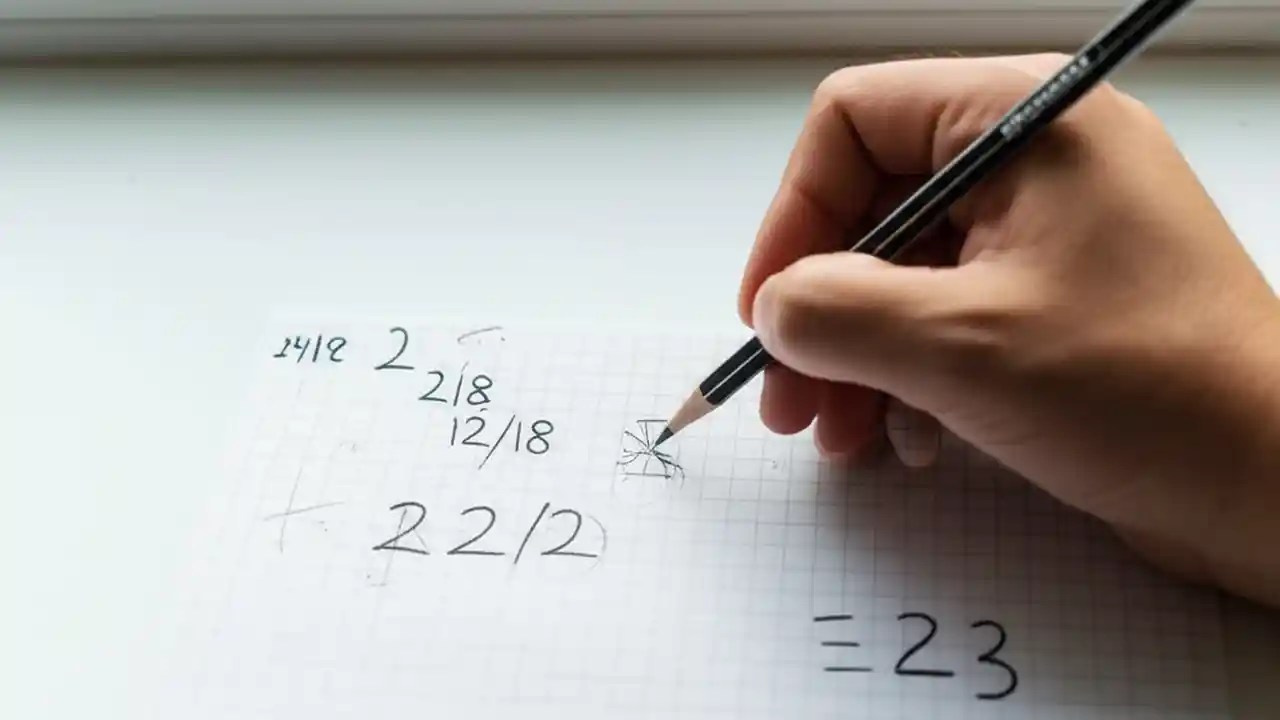 2
2/8
12/18
22/2
≡ 23